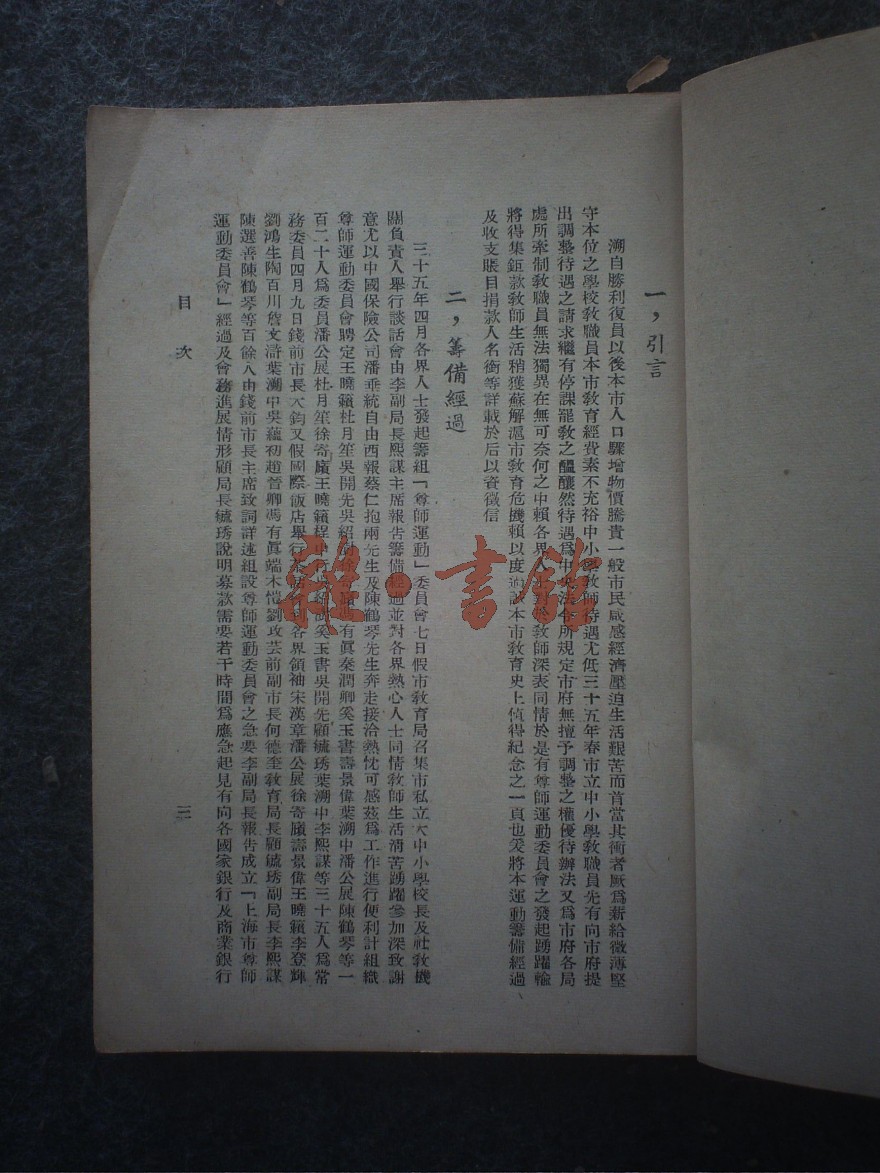 一，引言
溯自勝利復員以後本市人口驟增物價騰貴一般市民咸感經濟壓迫生活艱苦而首當其衝者厥為薪給微薄堅
守本位之學校教職員本市教育經費素不充裕中小學教師待遇尤低三十五年春市立中小學教職員先有向市府提
出調整待遇之請求繼有停課罷教之醞釀然待遇為中央法令所規定市府無擅予調整之權優待辦法又為市府各局
處所牽制教職員無法獨異在無可奈何之中賴各界人士對於教師深表同情於是有尊師運動委員會之發起踴躍輸
將得集鉅款教師生活稍獲蘇解滬市教育危機賴以度過誠本市教育史上值得紀念之一頁也爰將本運動籌備經過
及收支賬目捐款人名銜等詳載於后以資徵信
二，籌備經過
三十五年四月各界人士發起籌組「尊師運動」委員會七日假市教育局召集市私立大中小學校長及社教機
關負責人舉行談話會由李副局長熙謀主席報告籌備經過並對各界熱心人士同情教師生活清苦踴躍參加深致謝
意尤以中國保險公司潘垂統自由西報蔡仁抱兩先生及陳鶴琴先生奔走接洽熱忱可感茲為工作進行便利計組織
尊師運動委員會聘定王曉籟杜月笙吳開先吳紹澍徐寄廎馮有眞秦潤卿奚玉書壽景偉葉溯中潘公展陳鶴琴等一
百二十人為委員潘公展杜月笙徐寄廎王曉籟程中行吳紹澍奚玉書吳開先顧毓琇葉溯中李熙謀等三十五人為常
務委員四月九日錢前市長大鈞又假國際飯店舉行茶話會到各界領袖宋漢章潘公展徐寄廎壽景偉王曉籟李登輝
劉鴻生陶百川詹文滸葉溯中吳蘊初趙晉卿馮有眞端木愷劉攻芸前副市長何德奎教育局長顧毓琇副局長李熙謀
陳選善陳鶴琴等百餘人由錢前市長主席致詞詳述組設尊師運動委員會之急要李副局長報告成立「上海市尊師
運動委員會」經過及會務進展情形顧局長毓琇說明募款需要若干時間為應急起見有向各國家銀行及商業銀行
目次
三
雜·書館